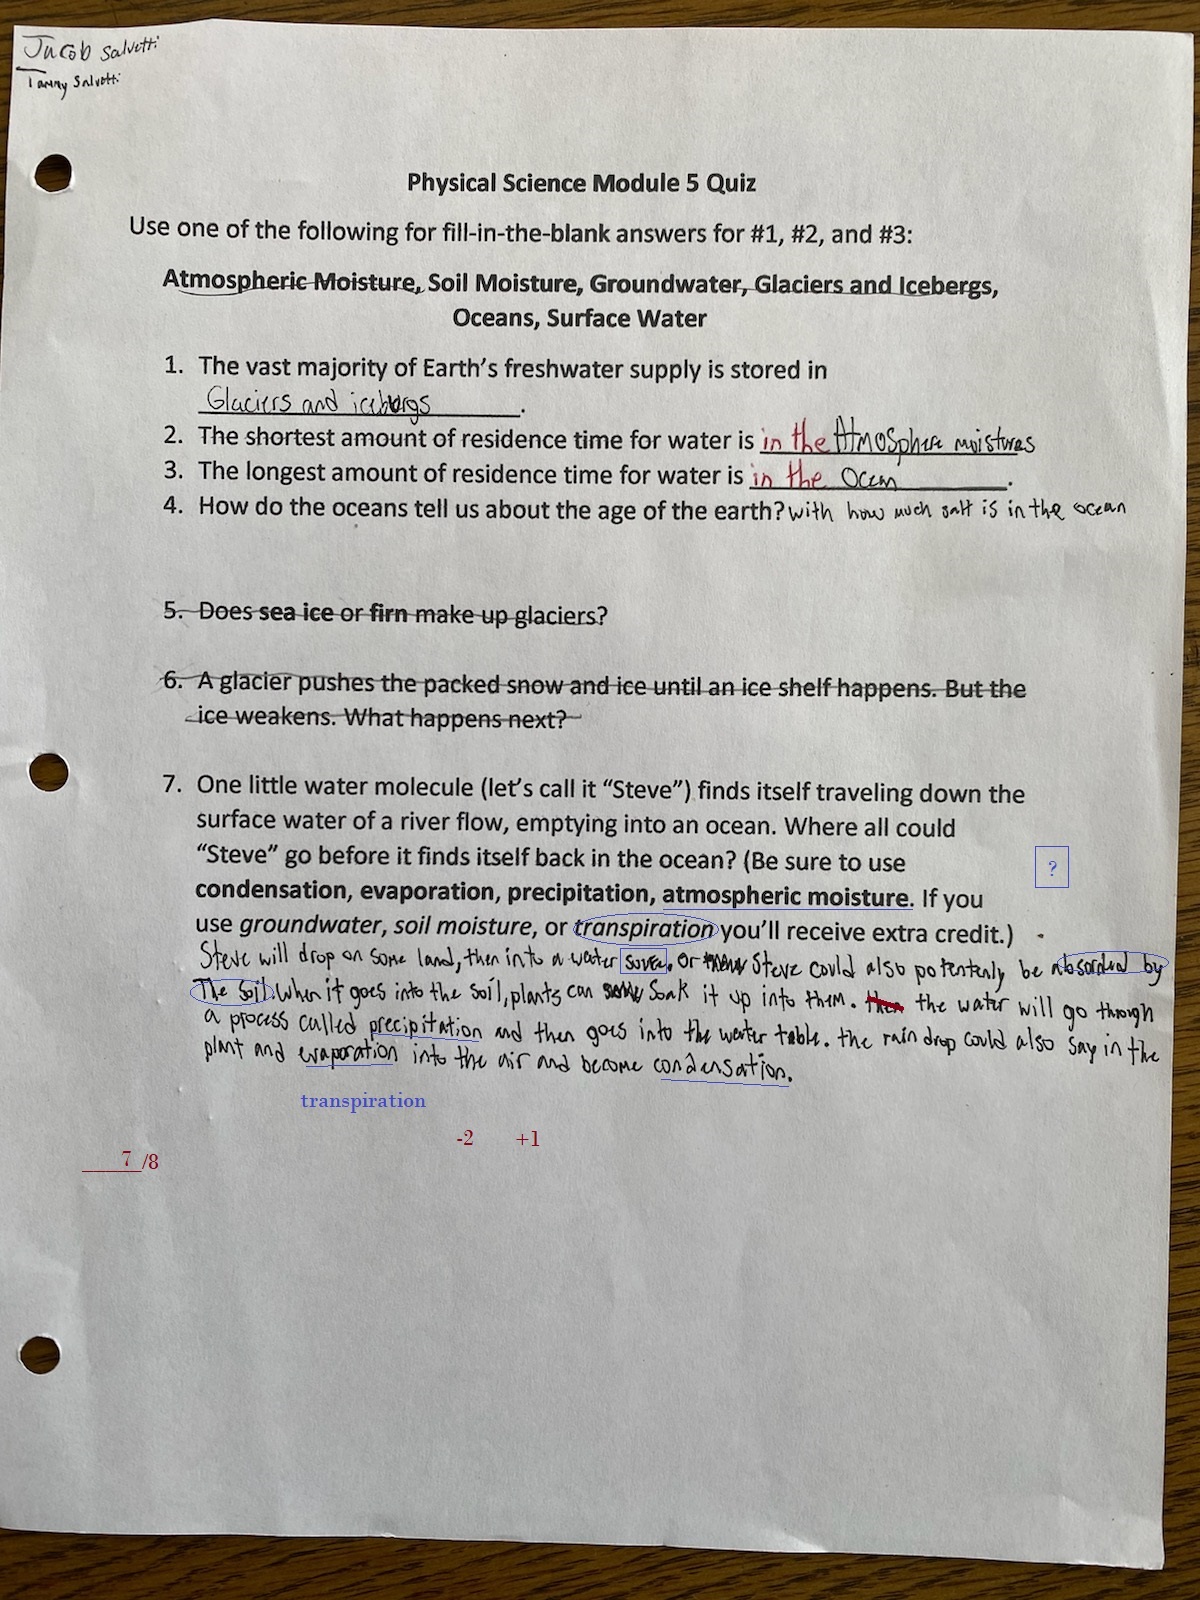 Jacob Salvetti
Tammy Salvetti
Physical Science Module 5 Quiz
Use one of the following for fill-in-the-blank answers for #1, #2, and #3:
Atmospheric Moisture, Soil Moisture, Groundwater, Glaciers and Icebergs,
Oceans, Surface Water
1. The vast majority of Earth's freshwater supply is stored in
Glaciers and icebergs.
2. The shortest amount of residence time for water is in the Atmosphere moistures
3. The longest amount of residence time for water is in the Ocean.
4. How do the oceans tell us about the age of the earth? with how much salt is in the ocean
5. Does sea ice or firn make up glaciers?
6. A glacier pushes the packed snow and ice until an ice shelf happens. But the
ice weakens. What happens next?
7. One little water molecule (let's call it "Steve") finds itself traveling down the
surface water of a river flow, emptying into an ocean. Where all could
"Steve" go before it finds itself back in the ocean? (Be sure to use
?
condensation, evaporation, precipitation, atmospheric moisture. If you
use groundwater, soil moisture, or transpiration you'll receive extra credit.)
Steve will drop on some land, then into a water . Or Steve could also potentenly be absorded by
The Soil. When it goes into the soil, plants can Soak it up into them. then the water will go through
a process called precipitation and then goes into the water table. the rain drop could also Say in the
plant and evaporation into the air and become condensation.
transpiration
-2 +1
7/8